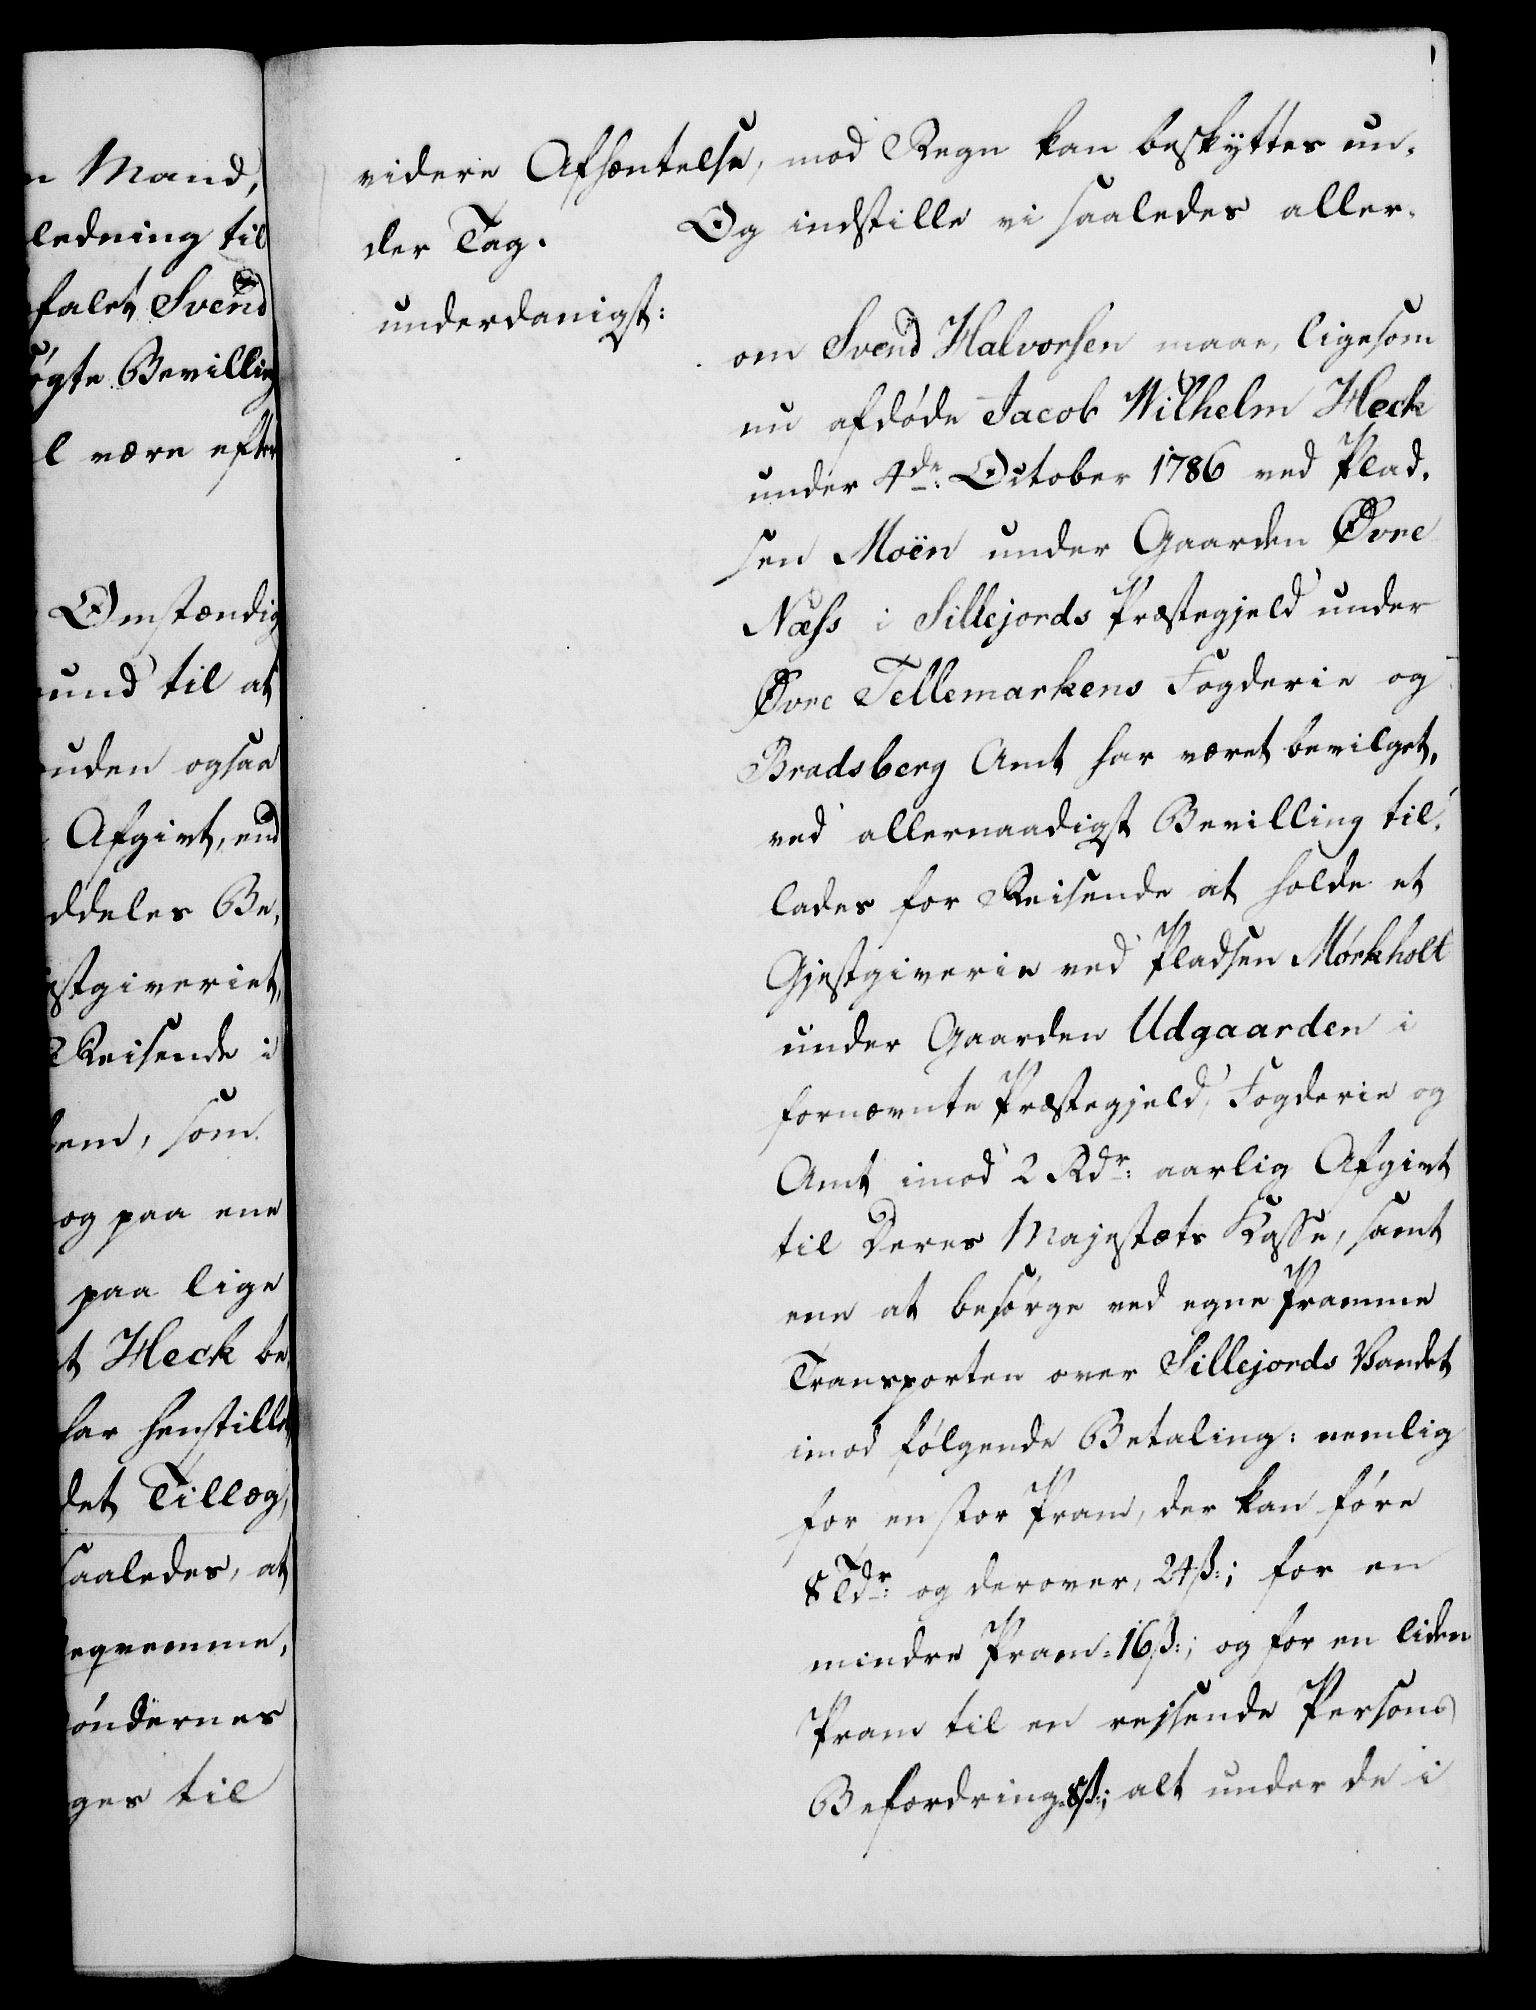 n Mand,
ledning til
falet Svend
øgte Bevilling
l være efter
Omstændig
und til at
uden ogsaa
Afgivt, end
ddeles Be,
stgiveriet,
Reisende i
em, som
og paa ene
paa lige
t Heck be
har henstillet,
det Tillæg,
saaledes, at
eqvemme,
øndernes
ges til
videre Afhæntelse, mod Regn kan beskyttes un,
der Tag. Og indstille vi saaledes aller,
underdanigst:
om Svend Halvorsen maae, ligesom
nu afdøde Jacob Wilhelm Heck
under 4de: October 1786 ved Plad,
sen Moën under Gaarden Øvre
Næss i Sillejords Præstegjeld under
Øvre Tellemarkens Fogderie og
Bradsberg Amt har været bevilget,
ved allernaadigst Bevilling til,
lades for Reisende at holde et
Gjestgiverie ved Pladsen Mørkholt
under Gaarden Udgaarden i
fornævnte Præstegjeld, Fogderie og
Amt imod 2 Rdr: aarlig Afgivt
til Deres Majestæts Kasse, samt
ene at besørge ved egne Pramme
Transporten over Sillejords Vandet
imod følgende Betaling: nemlig
for en stor Pram, der kan føre
8 Tdr: og derover, 24 ß:; for en
mindre Pram: 16 ß:; og for en liden
Pram til en reisende Persons
Befordring: 8 ß:; alt under de i